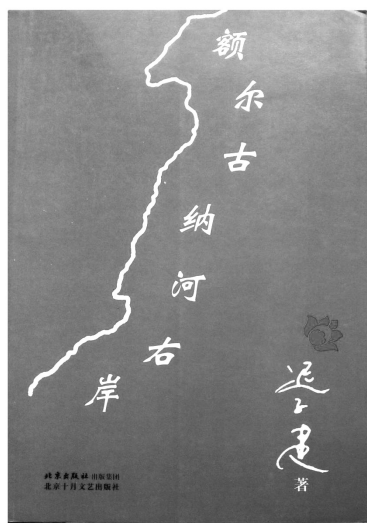 额尔古纳河右岸
迟子建
著
北京出版社 出版集团
北京十月文艺出版社